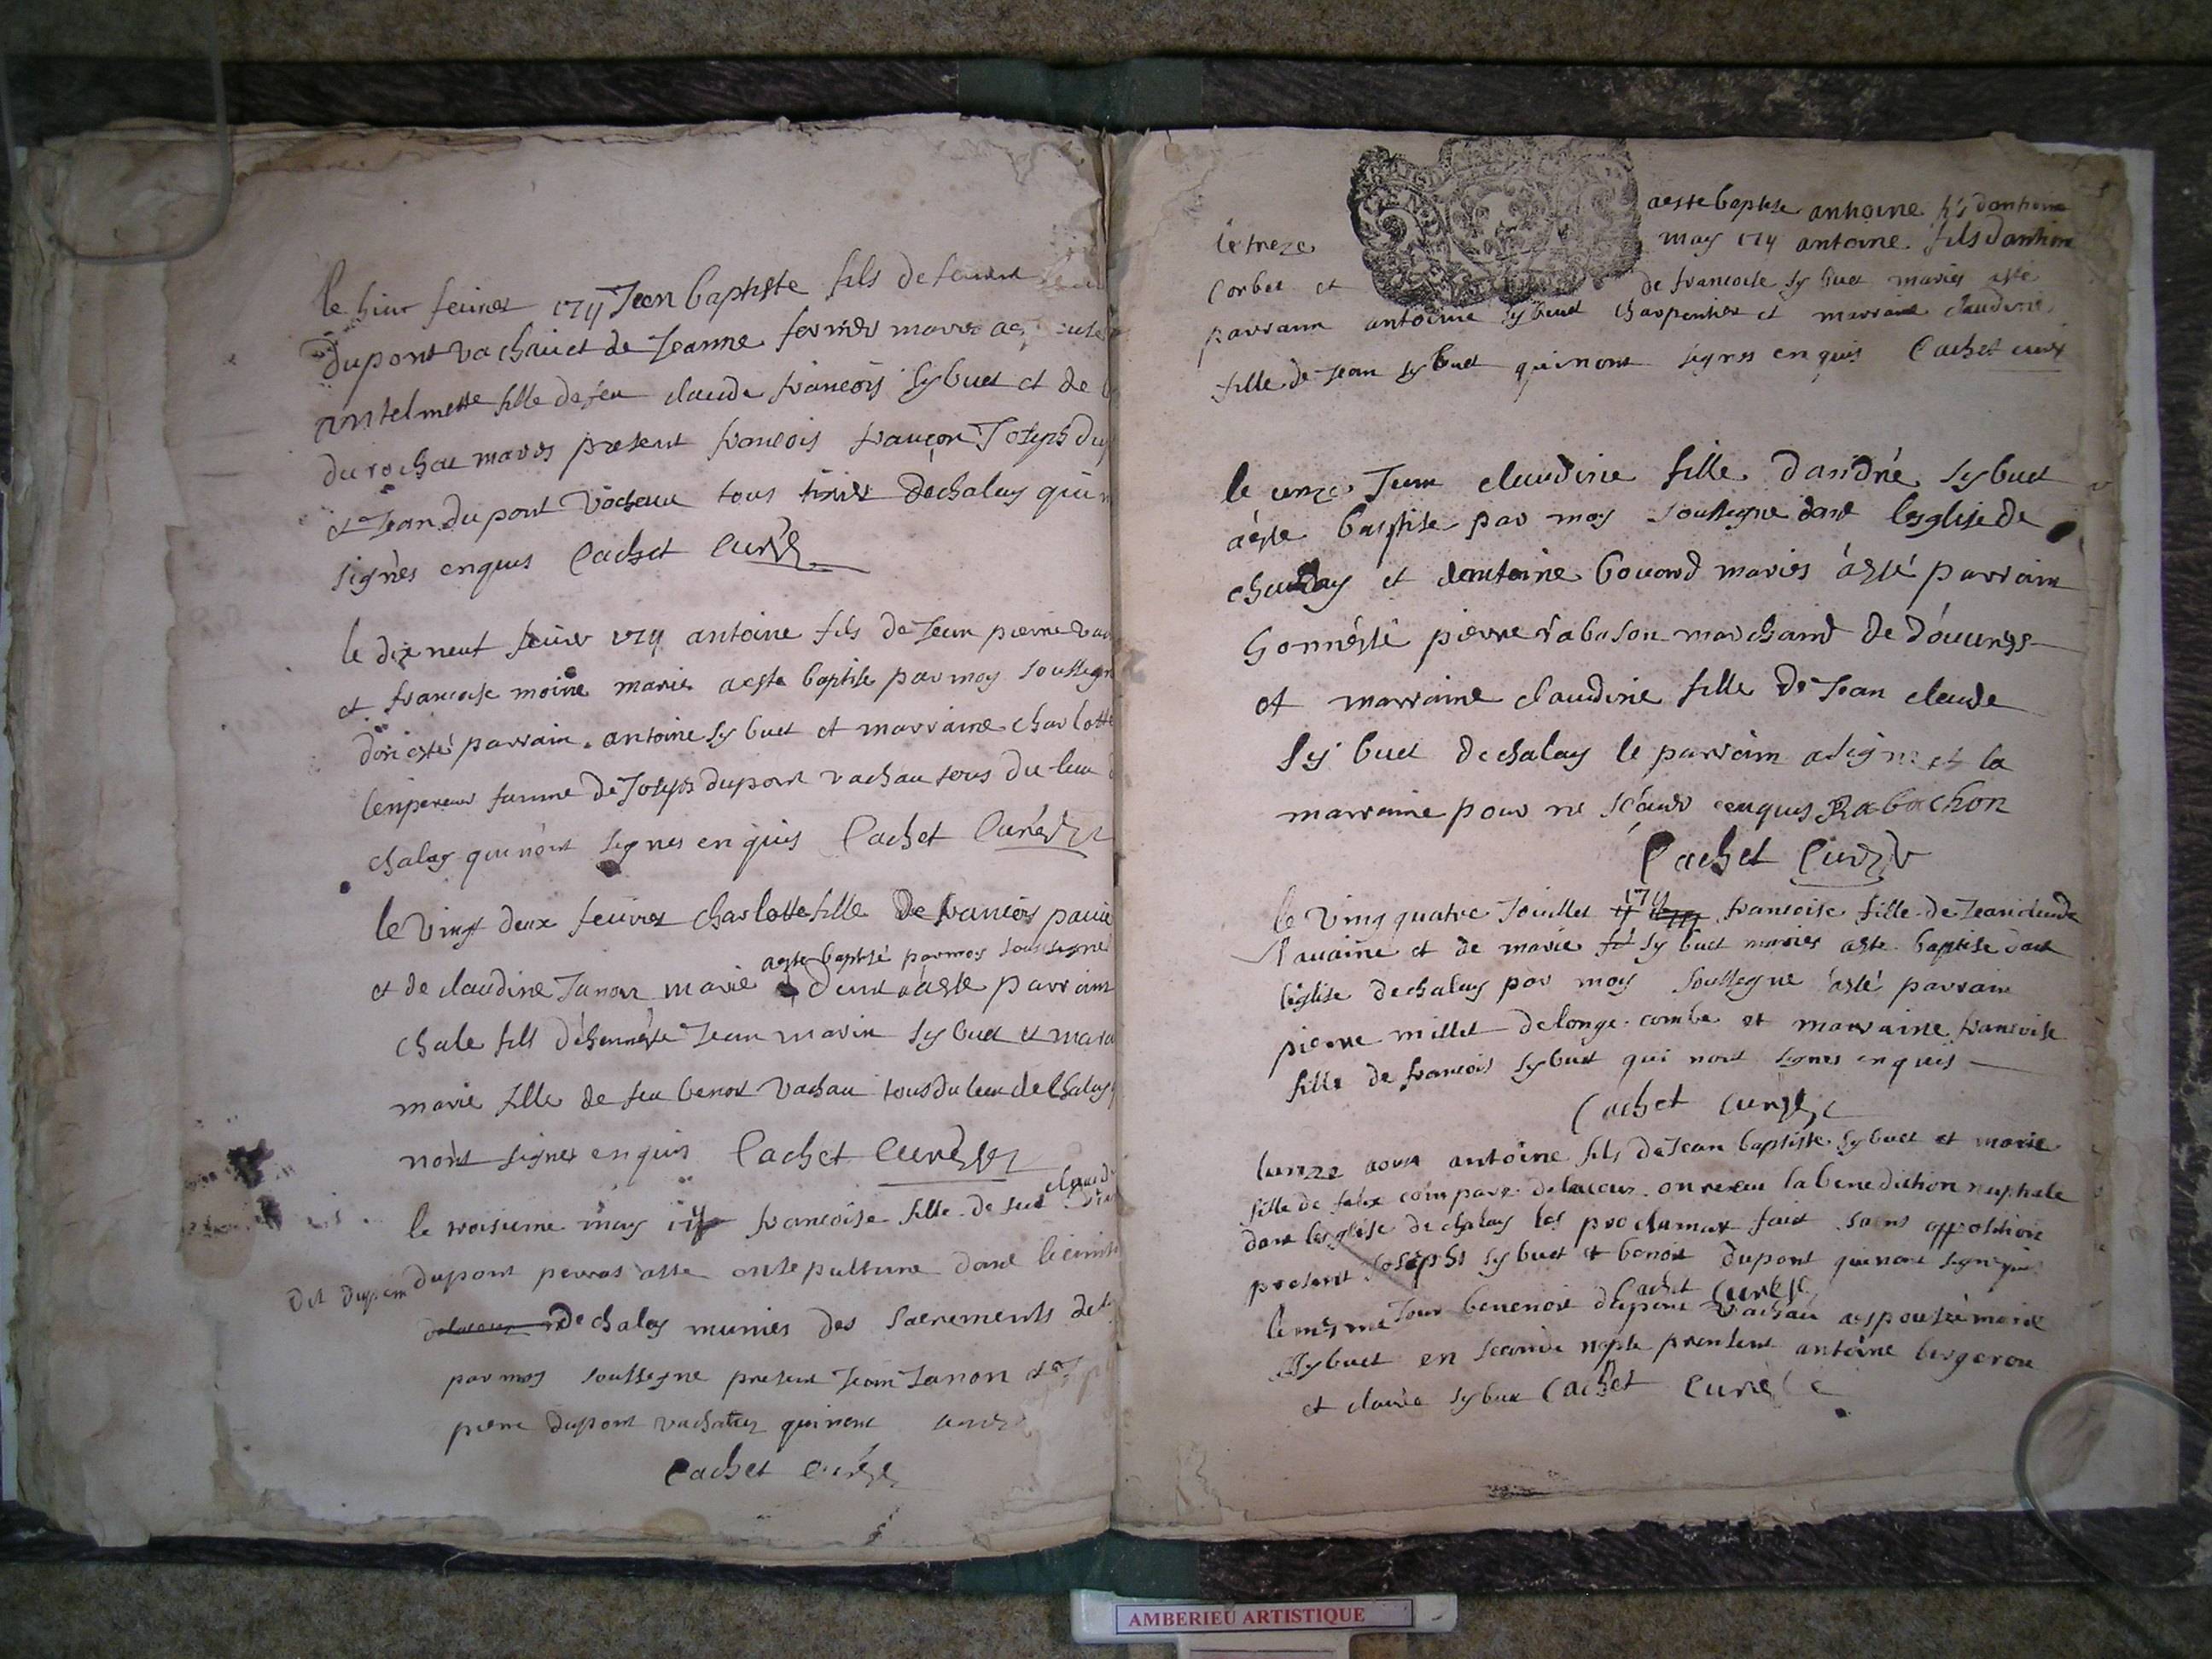 le huit feuiret 1711 Jean baptiste fils de
dupont vachau et de Jeanne fornier maries
antelmette fille de feu claude francois sybuet et de
du rochau maries present francois françon Joseph du
et Jean dupont vachau tous dechaley qui n
signès enquis Cachet Curé
le dix neuf feuire 1711 antoine fils de Jean pierre vac
et francoise moine maries aeste baptise par moy soussigne
don esté parrain antoine sybuet et marraine charlotte
lenpereur famme de Joseph dupont vachau tous du lieu
chaley qui nont signes enquis Cachet Curé
le vingt deux feuires charlotte fille de francois
et de claudine Janon marie aeste baptisé par moy soussigne dont aeste parrain
chale fils dehonneste Jean marin sybuet et mara
marie fille de feu benoit vachau tous du lieu de Chaley
nont signes enquis Cachet Curé
le troisieme may francoise fille de feu claude
dit dupom dupont perras este ensepulture dans le
de chaley munies des sacrements de
par moy soussigne present Jean Janon et
pierre dupont vachau qui nont
Cachet curé
aeste baptise antoine fils dantoine
le treze may 1711 antoine fils dantoine
Corbet et de francoise sybuet maries esté
parrain antoine sybuet charpentier et marraine claudine
fille de Jean sybuet qui nont signes enquis Cachet curé
le unze Juin claudine fille dandré sybuet
aeste baptise par moy soussigne dans lesglise de
chaley et dantoine bouard maries aesté parrain
honnesté pierre rabason marchant de douures
et marraine claudine fille de Jean claude
sybuet dechaley le parrain asigne et la
marraine pour ne scauoir enquis Rabachon
Cachet Curé
le vingt quatre Jouillet 1711 francoise fille de Jean claude
rauaine et de marie sybuet maries aeste baptise dans
léglise dechaley par moy soussigne esté parrain
pierre millet delonge combe et marraine francoise
fille de francois sybuet qui nont signes enquis
Cachet curé
lunze aoust antoine fils de Jean baptiste sybuet et marie
fille de felix compare delacour on receu la benediction nuptiale
dans lesglise de chaley les proclamat fait sans opposition
present Joseph sybuet et benoit dupont qui nont signe
Cachet Curé
le mesme Jour benenoit dupont vachau aespousé marie
sybuet en seconde nopse present antoine bergeron
et claude sybuet Cachet Curé
AMBERIEU ARTISTIQUE